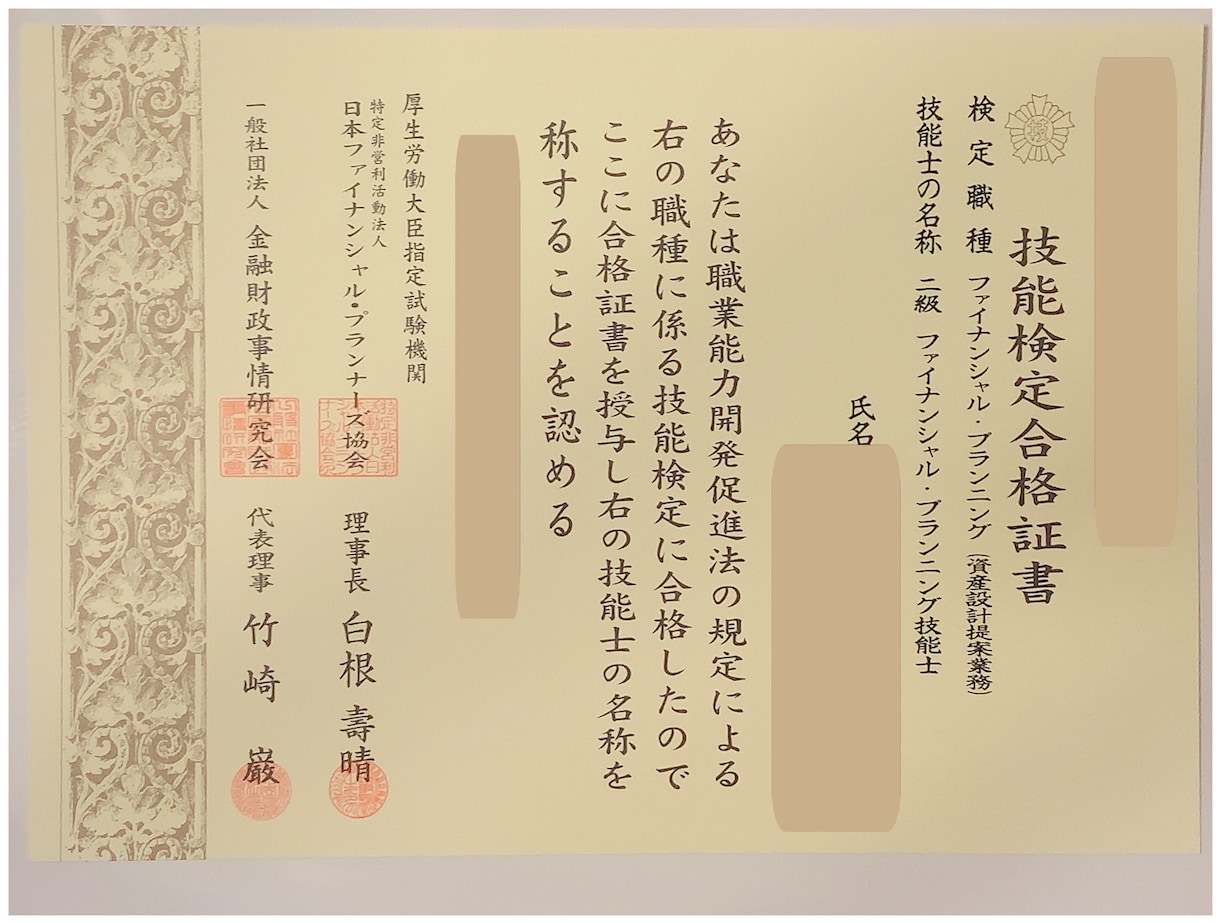 技能検定合格証書
検定職種 ファイナンシャル・プランニング(資産設計提案業務)
技能士の名称 二級 ファイナンシャル・プランニング技能士
氏名
あなたは職業能力開発促進法の規定による
右の職種に係る技能検定に合格したので
ここに合格証書を授与し右の技能士の名称を
称することを認める
厚生労働大臣指定試験機関
特定非営利活動法人
日本ファイナンシャル・プランナーズ協会 理事長 白根 壽晴
一般社団法人 金融財政事情研究会 代表理事 竹崎 巌